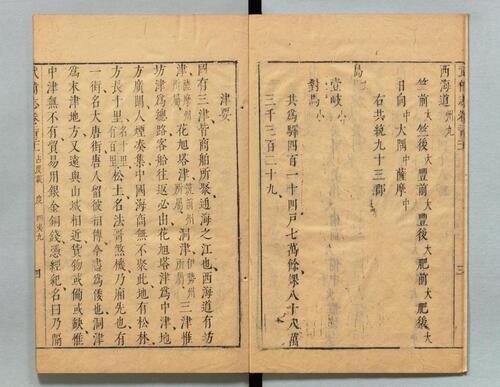 西海道九州
筑前大筑後大豐前大豐後大肥前大肥後大
日向中大隅中薩摩中
右共統九十三郡
島
壹岐小
對馬小
共為驛四百一十四戶七萬餘課八十八萬
三千三百二十九
津要
國有三津皆商舶所聚通海之江也西海道有坊
津薩摩州所屬花旭塔津筑前州所屬洞津伊勢州所屬三津惟
坊津為總路客船往返必由花旭塔津為中津地
方廣闊人煙湊集中國海商無不聚此地有松林
方長十里名十里松土名法哥煞機乃廂先也有
一街名大唐街唐人留彼相傳今盡為倭也洞津
為末津地方又遠與山城相近貨物或備或缺惟
中津無不有貿易用銀金銅錢憑經紀名曰乃隔
武備志卷 占度載 度 四夷九